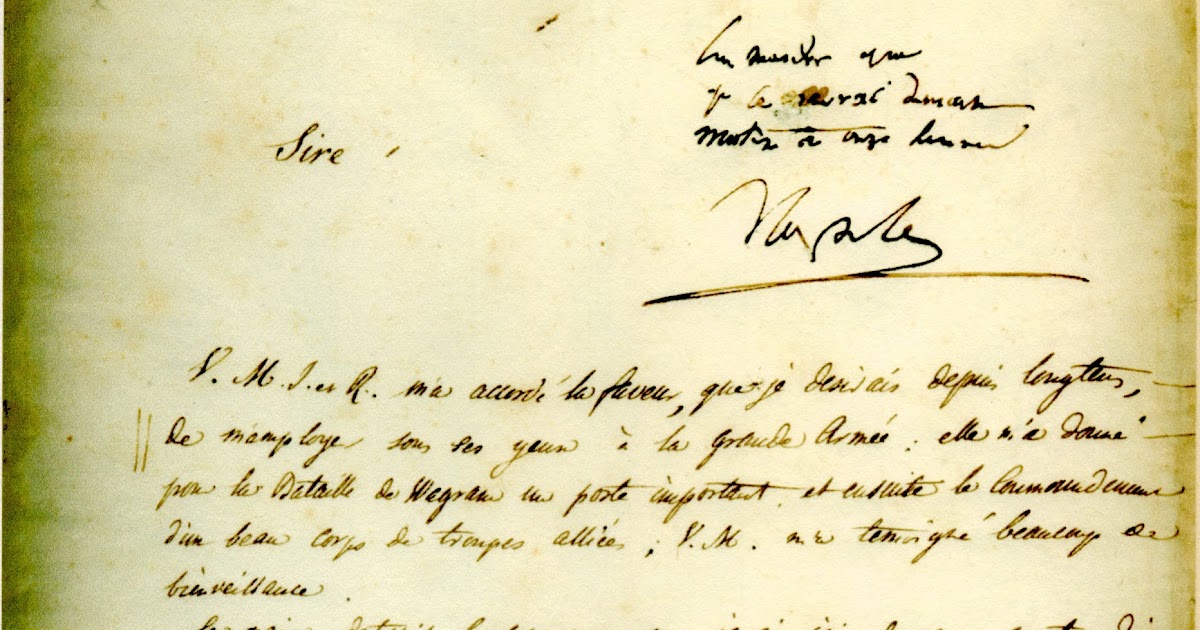 que
je le verrai demain
matin à onze heures
Sire
Napole
V. M. I. et R. m'a accordé la faveur, que je desirais depuis longtems,
de m'employer sous ses yeux à la grande Armée ; elle m'a donné
pour la Bataille de Wagram un poste important et ensuite le Commandement
d'un beau corps de troupes alliées ; V. M. m'a témoigné beaucoup de
bienveillance.